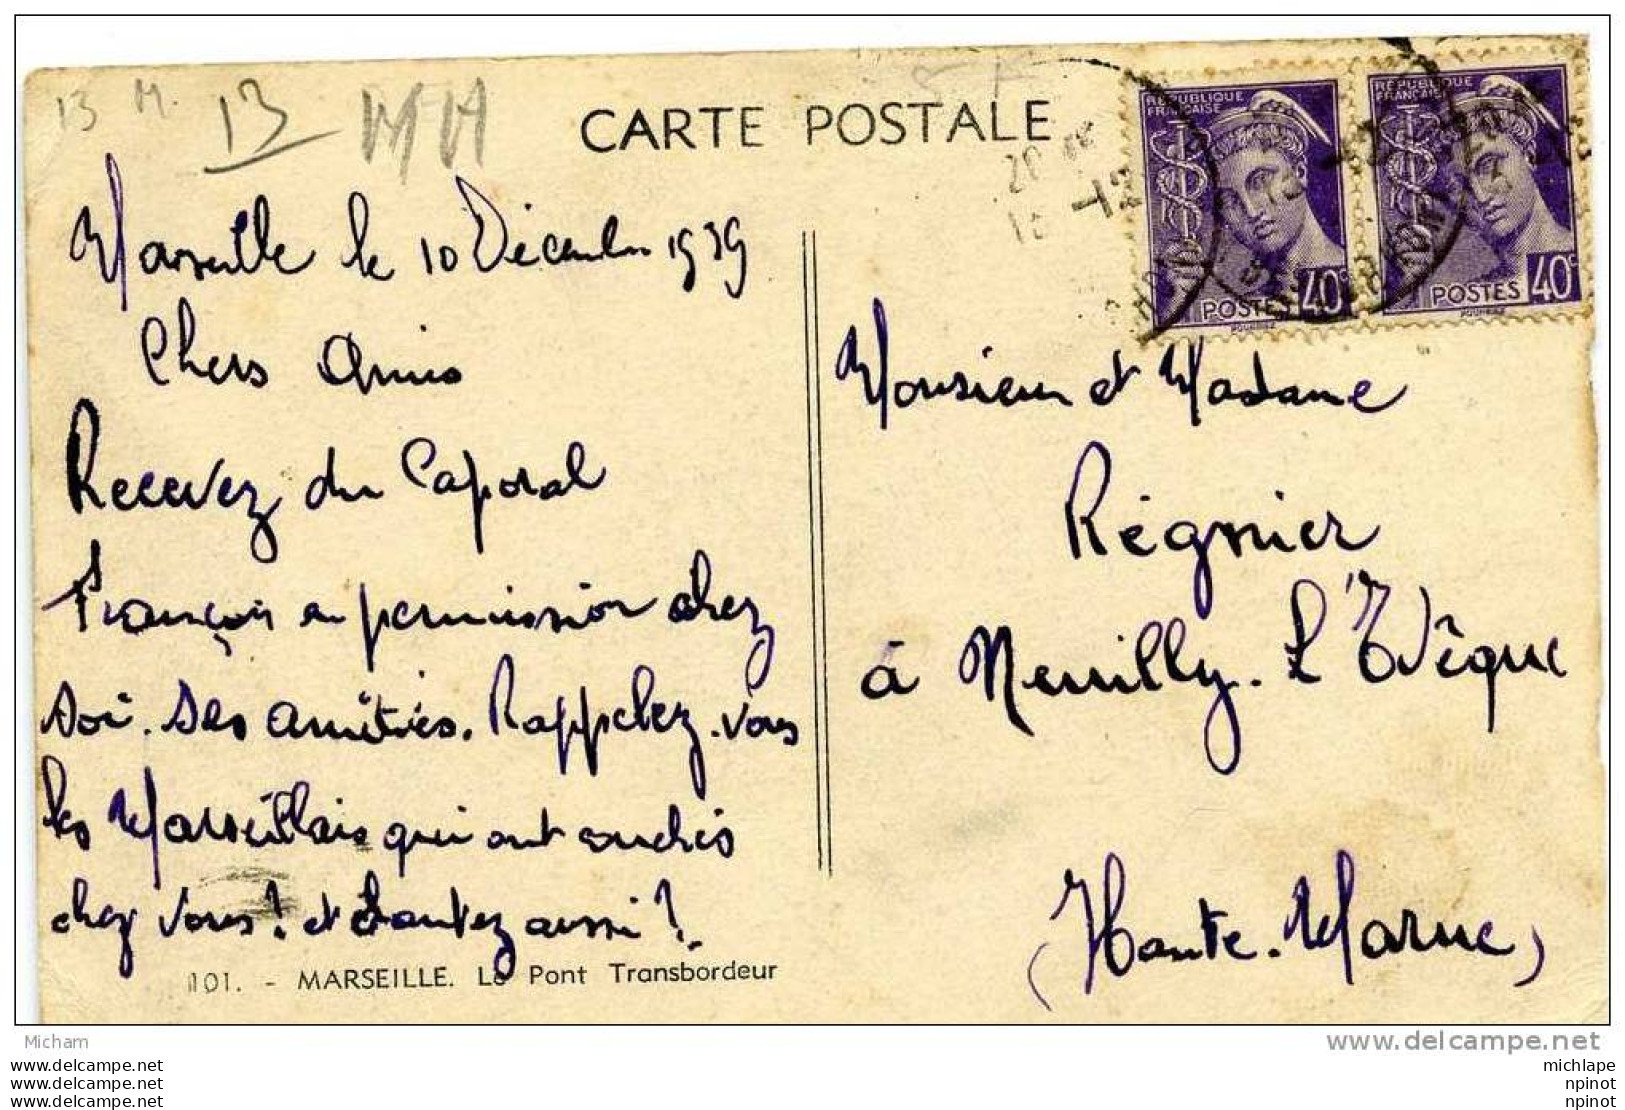 13 M.
13 MM
CARTE POSTALE
RÉPUBLIQUE
FRANÇAISE
POSTES 40c
RÉPUBLIQUE
FRANÇAISE
POSTES 40c
-12
Marseille le 10 Décembre 1939
Chers Amis
Recevez du Caporal
François en permission chez
soi. Ses amitiés. Rappelez-vous
les Marseillais qui ont couchés
chez vous! et chantez aussi?
101. - MARSEILLE. Le Pont Transbordeur
Monsieur et Madame
Régnier
à Neuilly-L'Evêque
(Haute-Marne)
Micham
delcampe.net
www.delcampe.net
www.delcampe.net
www.delcampe.net
michlape
npinot
npinot